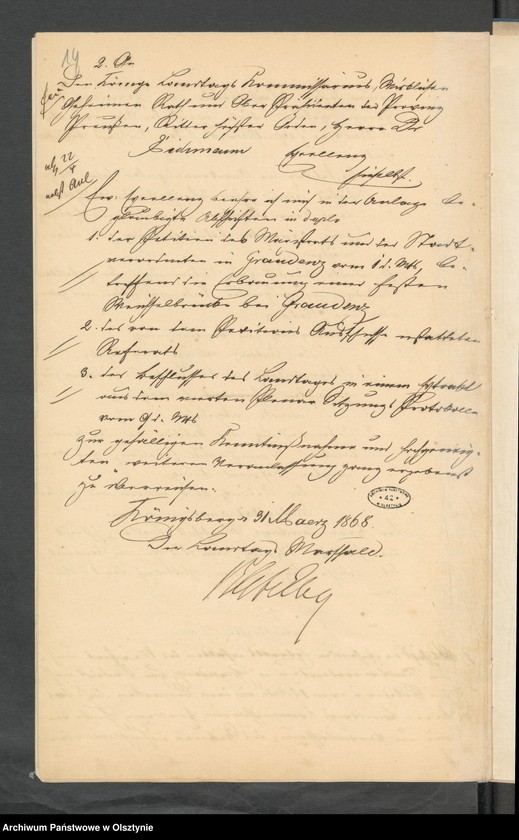 14
2. An
Den Königl. Landtags Kommissarius, Wirklichen
Geheimen Rath und Ober Präsidenten der Provinz
Preußen, Ritter hoher Orden, Herrn Dr
Eichmann Excellenz
hieselbst.
22
nebst Anl
Ew: Excellenz beehre ich mich in der Anlage be-
glaubigte Abschriften in duplo
1. der Petition des Magistrats und der Stadt-
verordneten in Graudenz vom d. Mts, be-
treffend die Erbauung einer festen
Weichselbrücke bei Graudenz
2. des von dem Petitions Ausschusse erstatteten
Referats
3. des Beschlusses des Landtages in einem Extrakt
aus dem vierten Plenar Sitzungs Protokoll
vom 9 d. Mts
zur gefälligen Kenntnißnahme und hochgeneig-
ten weiteren Veranlassung ganz ergebenst
zu überreichen.
Königsberg 31 Maerz 1868.
Der Landtags Marschall.
42
Archiwum Państwowe w Olsztynie